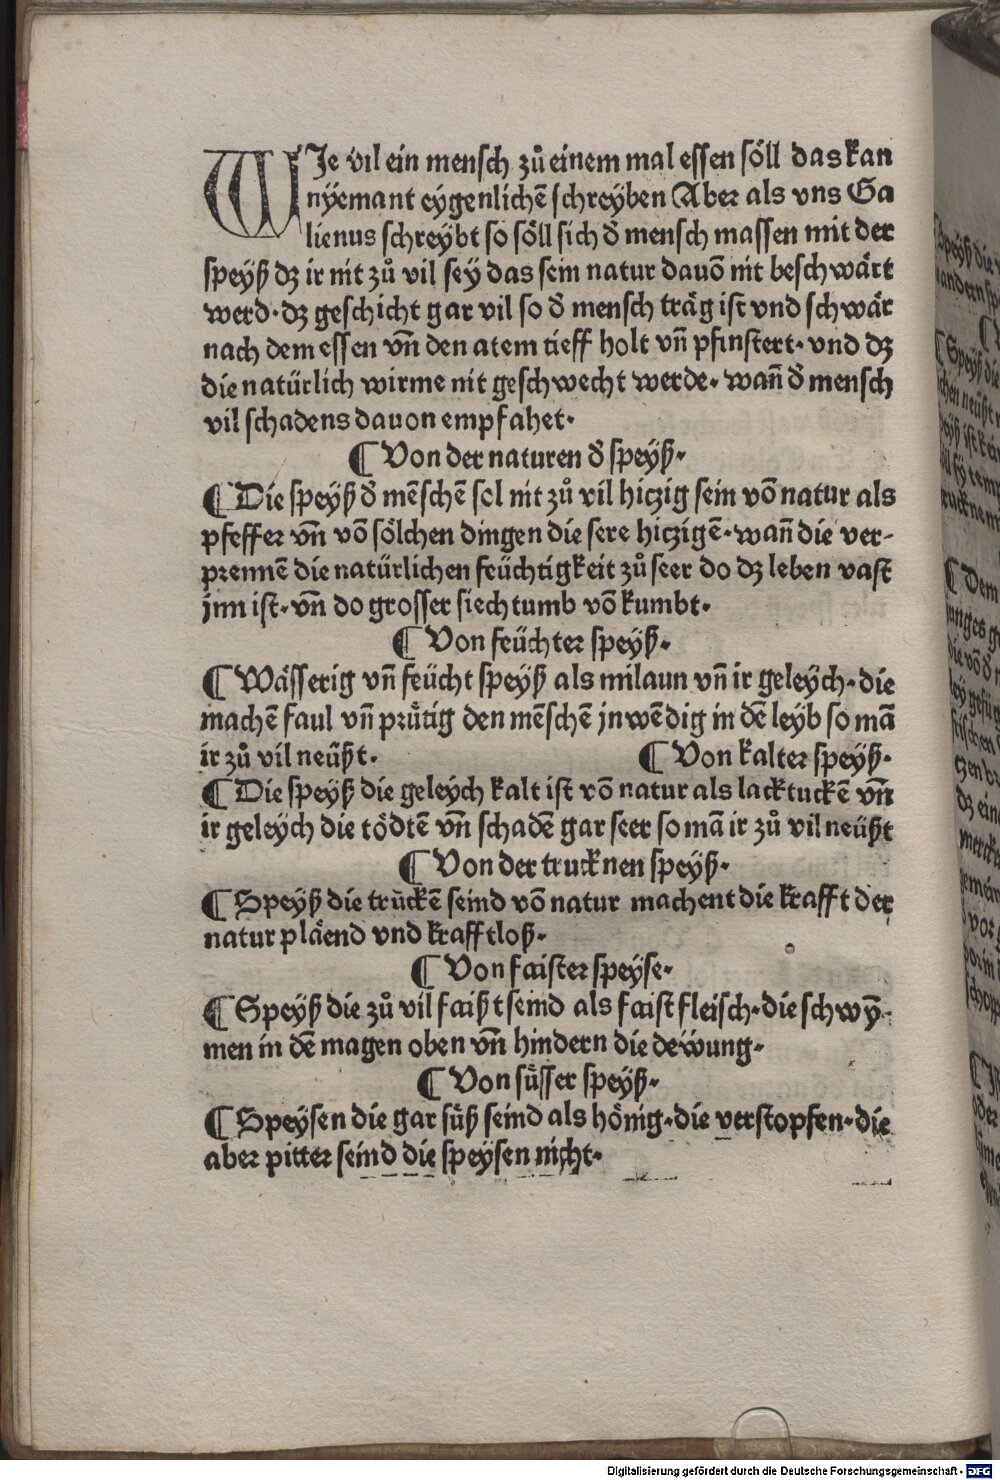 WJe vil ein mensch zů einem mal essen söll das kan
nyemant eygenlichē schreyben Aber als vns Ga
lienus schreybt so söll sich d̄ mensch massen mit der
speyß dz ir nit zů vil sey das sein natur dauō nit beschwärt
werd · dz geschicht gar vil so d̄ mensch träg ist vnd schwär
nach dem essen vn̄ den atem tieff holt vn̄ pfinstert · vnd dz
die natürlich wirme nit geschwecht werde · wan̄ d̄ mensch
vil schadens dauon empfahet ·
¶ Von der naturen d̄ speyß ·
¶ Die speyß d̄ mēschē sol nit zů vil hiczig sein vō natur als
pfeffer vn̄ vō sölchen dingen die sere hiczigē · wan̄ die ver-
prennē die natürlichen feüchtigkeit zů seer do dz leben vast
jnn ist · vn̄ do grosser siechtumb vō kumbt ·
¶ Von feüchter speyß ·
¶ Wässerig vn̄ feücht speyß als milaun vn̄ ir geleych · die
machē faul vn̄ prütig den mēschē jnwēdig in dē leyb so mā
ir zů vil neüßt ·
¶ Von kalter speyß ·
¶ Die speyß die geleych kalt ist vō natur als lacktuckē vn̄
ir geleych die tödtē vn̄ schadē gar seer so mā ir zů vil neüßt
¶ Von der trucknen speyß ·
¶ Speyß die trückē seind vō natur machent die krafft der
natur pläend vnd krafftloß ·
¶ Von faister speyse ·
¶ Speyß die zů vil faißt seind als faist fleisch · die schwȳ-
men in dē magen oben vn̄ hindern die dewung ·
¶ Von süsser speyß ·
¶ Speysen die gar süß seind als hönig · die verstopfen · die
aber pitter seind die speysen nicht ·
Digitalisierung gefördert durch die Deutsche Forschungsgemeinschaft - DFG